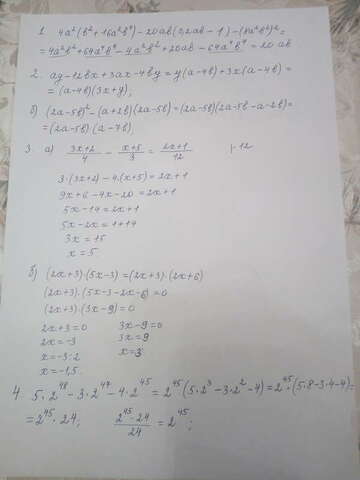 1. 4a²(b²+16a²b⁴)-20ab(0,2ab-1)-(8a²b²)²=
=4a²b²+64a⁴b⁴-4a²b²+20ab-64a⁴b⁴=20ab
2. ay-12bx+3ax-4by=y(a-4b)+3x(a-4b)=
=(a-4b)(3x+y);
б) (2a-5b)²-(a+2b)(2a-5b)=(2a-5b)(2a-5b-a-2b)=
=(2a-5b)(a-7b)
3. а) (3x+2)/4 - (x+5)/3 = (2x+1)/12 |·12
3·(3x+2)-4·(x+5)=2x+1
9x+6-4x-20=2x+1
5x-14=2x+1
5x-2x=1+14
3x=15
x=5
б) (2x+3)·(5x-3)=(2x+3)·(2x+6)
(2x+3)·(5x-3-2x-6)=0
(2x+3)·(3x-9)=0
2x+3=0 3x-9=0
2x=-3 3x=9
x=-3:2 x=3
x=-1,5
4 5·2⁴⁸-3·2⁴⁷-4·2⁴⁵=2⁴⁵(5·2³-3·2²-4)=2⁴⁵·(5·8-3·4-4)=
=2⁴⁵·24; (2⁴⁵·24)/24=2⁴⁵;